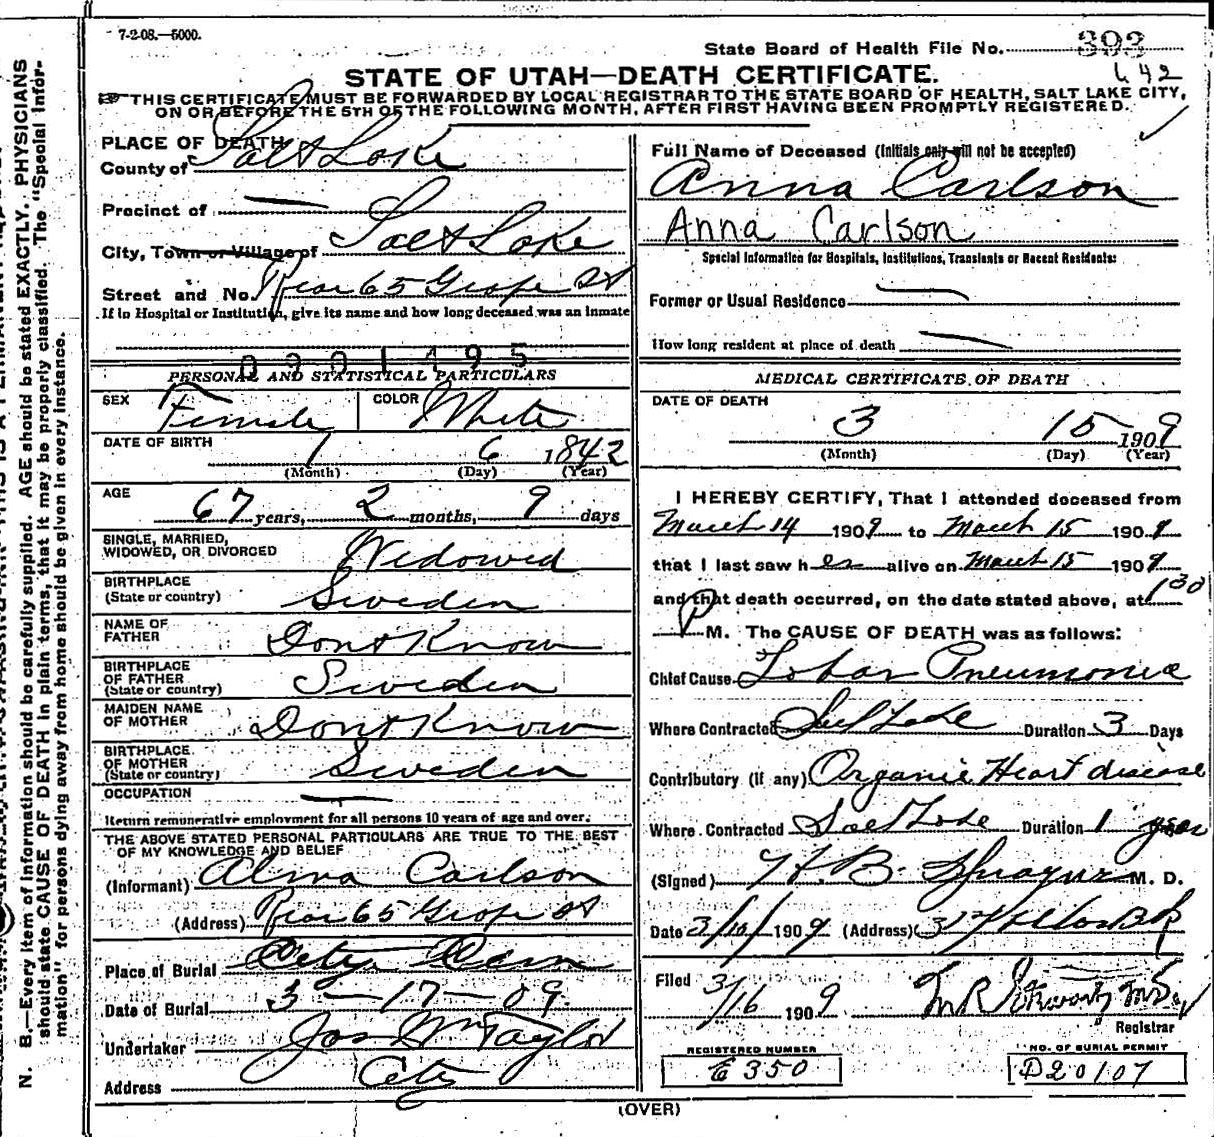 7-2-08.—5000.
State Board of Health File No. 393
642
STATE OF UTAH—DEATH CERTIFICATE.
THIS CERTIFICATE MUST BE FORWARDED BY LOCAL REGISTRAR TO THE STATE BOARD OF HEALTH, SALT LAKE CITY,
ON OR BEFORE THE 5TH OF THE FOLLOWING MONTH, AFTER FIRST HAVING BEEN PROMPTLY REGISTERED.
PLACE OF DEATH
County of Salt Lake
Precinct of —
City, Town or Village of Salt Lake
Street and No. Rear 65 Grape St
If in Hospital or Institution, give its name and how long deceased was an inmate
0901495
PERSONAL AND STATISTICAL PARTICULARS
SEX Female COLOR White
DATE OF BIRTH 1 6 1842
(Month) (Day) (Year)
AGE 67 years, 2 months, 9 days
SINGLE, MARRIED,
WIDOWED, OR DIVORCED Widowed
BIRTHPLACE
(State or country) Sweden
NAME OF
FATHER Dont Know
BIRTHPLACE
OF FATHER
(State or country) Sweden
MAIDEN NAME
OF MOTHER Dont Know
BIRTHPLACE
OF MOTHER
(State or country) Sweden
OCCUPATION —
Return remunerative employment for all persons 10 years of age and over.
THE ABOVE STATED PERSONAL PARTICULARS ARE TRUE TO THE BEST
OF MY KNOWLEDGE AND BELIEF
(Informant) Alma Carlson
(Address) Rear 65 Grape St
Place of Burial City Cem
Date of Burial 3-17-09
Undertaker Jos Wm Taylor
Address City
Full Name of Deceased (Initials only will not be accepted)
Anna Carlson
Anna Carlson
Special Information for Hospitals, Institutions, Transients or Recent Residents:
Former or Usual Residence —
How long resident at place of death —
MEDICAL CERTIFICATE OF DEATH
DATE OF DEATH
3 15 1909
(Month) (Day) (Year)
I HEREBY CERTIFY, That I attended deceased from
March 14 1909 to March 15 1909
that I last saw her alive on March 15 1909
and that death occurred, on the date stated above, at 1 30
P M. The CAUSE OF DEATH was as follows:
Chief Cause Lobar Pneumonia
Where Contracted Salt Lake Duration 3 Days
Contributory (if any) Organic Heart disease
Where Contracted Salt Lake Duration 1 year
(Signed) H. B. M. D.
Date 3/16/1909 (Address)
Filed 3/16 1909
Registrar
REGISTERED NUMBER
E350
NO. OF BURIAL PERMIT
D20107
(OVER)
N. B.—Every item of information should be carefully supplied. AGE should be stated EXACTLY. PHYSICIANS
should state CAUSE OF DEATH in plain terms, that it may be properly classified. The "Special Infor-
mation" for persons dying away from home should be given in every instance.